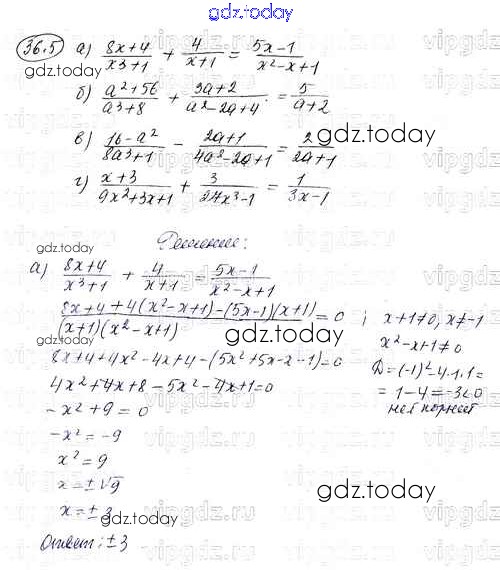 gdz.today
36.5 а) (8x+4)/(x³+1) + 4/(x+1) = (5x-1)/(x²-x+1)
gdz.today
б) (a²+56)/(a³+8) + (3a+2)/(a²-2a+4) = 5/(a+2)
gdz.today
в) (16-a²)/(8a³+1) - (2a+1)/(4a²-2a+1) = 2/(2a+1)
gdz.today
г) (x+3)/(9x²+3x+1) + 3/(27x³-1) = 1/(3x-1)
Решение:
gdz.today
а) (8x+4)/(x³+1) + 4/(x+1) = (5x-1)/(x²-x+1)
(8x+4+4(x²-x+1)-(5x-1)(x+1))/((x+1)(x²-x+1)) = 0 ; x+1≠0, x≠-1
gdz.today
x²-x+1≠0
8x+4+4x²-4x+4-(5x²+5x-x-1)=0 Д=(-1)²-4·1·1=
4x²+4x+8-5x²-4x+1=0 =1-4=-3<0
нет корней
-x²+9=0
-x²=-9
x²=9
x=±√9
gdz.today
gdz.today
x=±3
Ответ: ±3
gdz.today